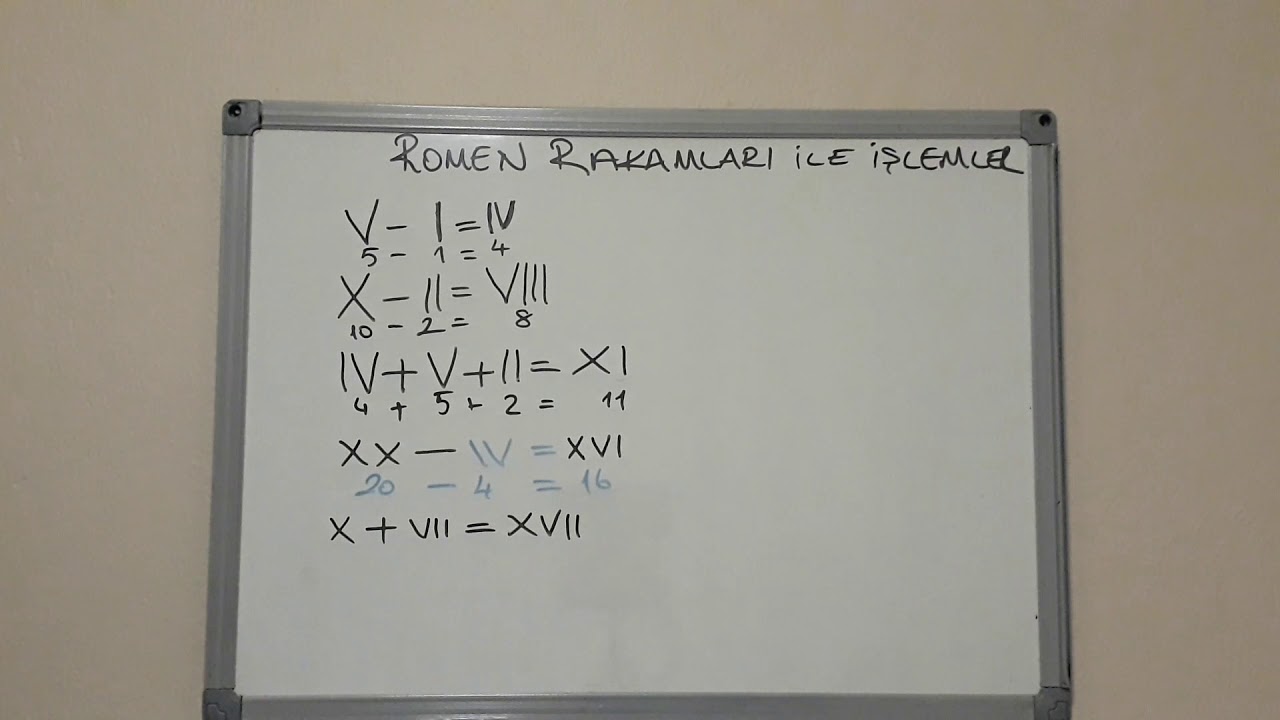 ROMEN RAKAMLARI iLE iŞLEMLER
V - I = IV
5 - 1 = 4
X - II = VIII
10 - 2 = 8
IV + V + II = XI
4 + 5 + 2 = 11
XX - IV = XVI
20 - 4 = 16
X + VII = XVII